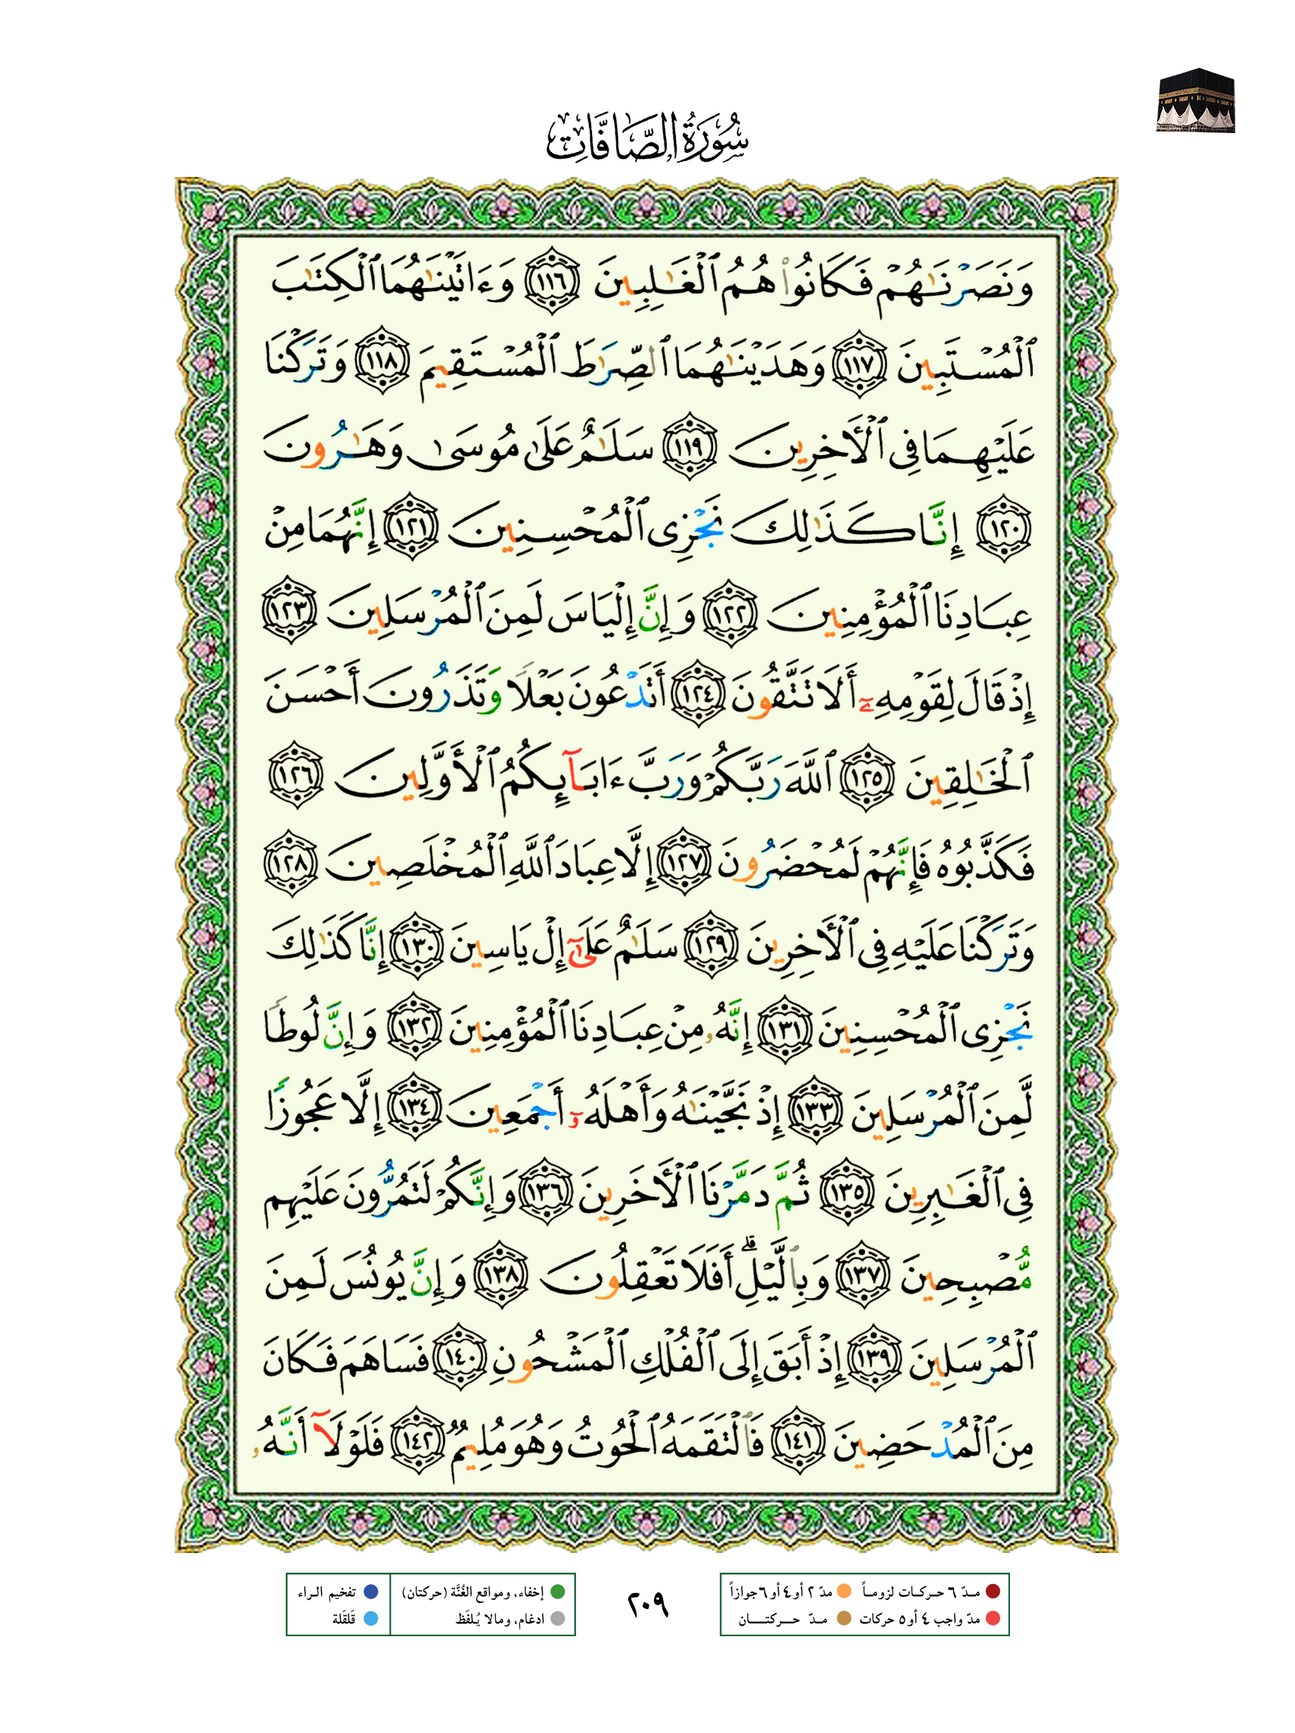 سُورَةُ الصَّافَّاتِ
وَنَصَرْنَٰهُمْ فَكَانُوا۟ هُمُ ٱلْغَٰلِبِينَ ١١٦ وَءَاتَيْنَٰهُمَا ٱلْكِتَٰبَ
ٱلْمُسْتَبِينَ ١١٧ وَهَدَيْنَٰهُمَا ٱلصِّرَٰطَ ٱلْمُسْتَقِيمَ ١١٨ وَتَرَكْنَا
عَلَيْهِمَا فِى ٱلْأَخِرِينَ ١١٩ سَلَٰمٌ عَلَىٰ مُوسَىٰ وَهَٰرُونَ
١٢٠ إِنَّا كَذَٰلِكَ نَجْزِى ٱلْمُحْسِنِينَ ١٢١ إِنَّهُمَا مِنْ
عِبَادِنَا ٱلْمُؤْمِنِينَ ١٢٢ وَإِنَّ إِلْيَاسَ لَمِنَ ٱلْمُرْسَلِينَ ١٢٣
إِذْ قَالَ لِقَوْمِهِۦٓ أَلَا تَتَّقُونَ ١٢٤ أَتَدْعُونَ بَعْلًا وَتَذَرُونَ أَحْسَنَ
ٱلْخَٰلِقِينَ ١٢٥ ٱللَّهَ رَبَّكُمْ وَرَبَّ ءَابَآئِكُمُ ٱلْأَوَّلِينَ ١٢٦
فَكَذَّبُوهُ فَإِنَّهُمْ لَمُحْضَرُونَ ١٢٧ إِلَّا عِبَادَ ٱللَّهِ ٱلْمُخْلَصِينَ ١٢٨
وَتَرَكْنَا عَلَيْهِ فِى ٱلْأَخِرِينَ ١٢٩ سَلَٰمٌ عَلَىٰٓ إِلْ يَاسِينَ ١٣٠ إِنَّا كَذَٰلِكَ
نَجْزِى ٱلْمُحْسِنِينَ ١٣١ إِنَّهُۥ مِنْ عِبَادِنَا ٱلْمُؤْمِنِينَ ١٣٢ وَإِنَّ لُوطًا
لَّمِنَ ٱلْمُرْسَلِينَ ١٣٣ إِذْ نَجَّيْنَٰهُ وَأَهْلَهُۥٓ أَجْمَعِينَ ١٣٤ إِلَّا عَجُوزًا
فِى ٱلْغَٰبِرِينَ ١٣٥ ثُمَّ دَمَّرْنَا ٱلْأَخَرِينَ ١٣٦ وَإِنَّكُمْ لَتَمُرُّونَ عَلَيْهِم
مُّصْبِحِينَ ١٣٧ وَبِٱلَّيْلِ ۗ أَفَلَا تَعْقِلُونَ ١٣٨ وَإِنَّ يُونُسَ لَمِنَ
ٱلْمُرْسَلِينَ ١٣٩ إِذْ أَبَقَ إِلَى ٱلْفُلْكِ ٱلْمَشْحُونِ ١٤٠ فَسَاهَمَ فَكَانَ
مِنَ ٱلْمُدْحَضِينَ ١٤١ فَٱلْتَقَمَهُ ٱلْحُوتُ وَهُوَ مُلِيمٌ ١٤٢ فَلَوْلَآ أَنَّهُۥ
مدّ ٦ حركات لزوماً مدّ ٢ أو ٤ أو ٦ جوازاً
مدّ واجب ٤ أو ٥ حركات مدّ حركتان
٢٠٩
إخفاء، ومواقع الغُنَّة (حركتان) تفخيم الراء
ادغام، ومالا يُلفَظ قلقلة